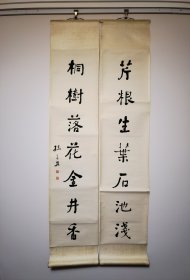 芹根生葉石池淺
桐樹落花金井香